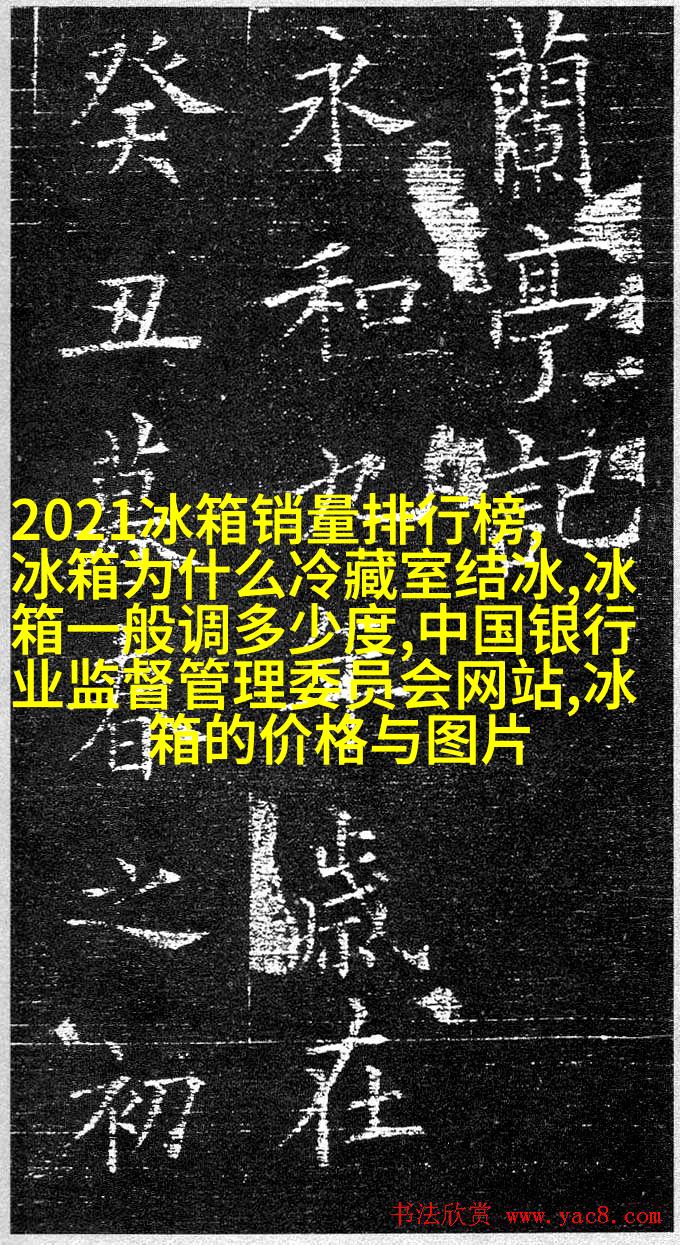 蘭亭記
永和九歲在
癸丑暮春之初
2021冰箱销量排行榜,
冰箱为什么冷藏室结冰,冰
箱一般调多少度,中国银行
业监督管理委员会网站,冰
箱的价格与图片
书法欣赏 www.yac8.com